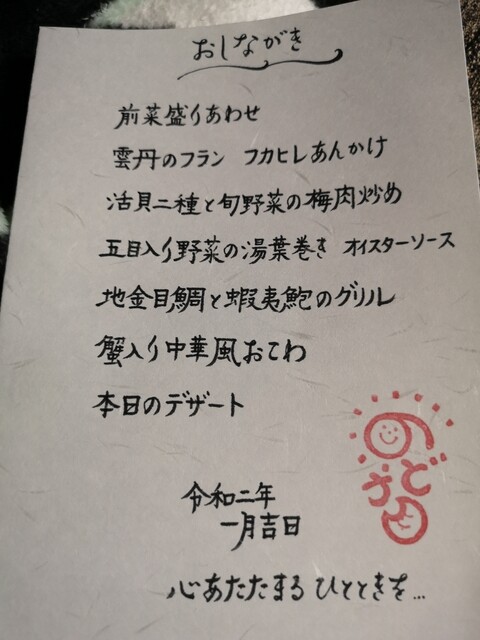 おしながき
前菜盛りあわせ
雲丹のフラン フカヒレあんかけ
活貝二種と旬野菜の梅肉炒め
五目入り野菜の湯葉巻き オイスターソース
地金目鯛と蝦夷鮑のグリル
蟹入り中華風おこわ
本日のデザート
令和二年
一月吉日
心あたたまる ひとときを…